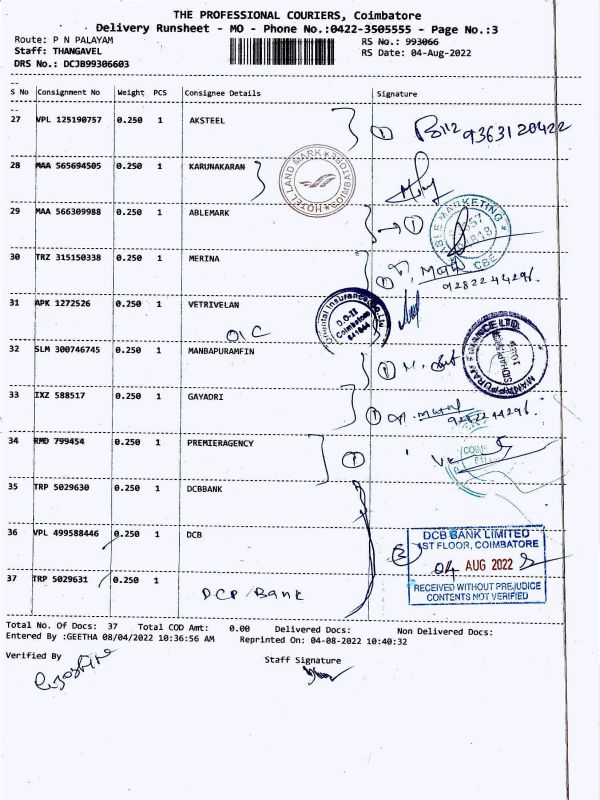 THE PROFESSIONAL COURIERS, Coimbatore
Delivery Runsheet - MO - Phone No.:0422-3505555 - Page No.:3
Route: P N PALAYAM RS No.: 993066
Staff: THANGAVEL RS Date: 04-Aug-2022
DRS No.: DCJB99306603
S No Consignment No Weight PCS Consignee Details Signature
27 VPL 125190757 0.250 1 AKSTEEL 1 9363120422
28 MAA 565694505 0.250 1 KARUNAKARAN
HOTEL LAND MARK COIMBATORE
29 MAA 566309988 0.250 1 ABLEMARK 1
ABLE MARKETING CBE
30 TRZ 315150338 0.250 1 MERINA 1 9282244296.
31 APK 1272526 0.250 1 VETRIVELAN
OIC
Oriental Insurance Co. Ltd D.O-II Coimbatore
32 SLM 300746745 0.250 1 MANBAPURAMFIN 1
MANAPPURAM FINANCE LTD.
33 IXZ 588517 0.250 1 GAYADRI 1 9282244296.
34 RMD 799454 0.250 1 PREMIERAGENCY 1
35 TRP 5029630 0.250 1 DCBBANK
36 VPL 499588446 0.250 1 DCB 3
DCB BANK LIMITED
1ST FLOOR, COIMBATORE
04 AUG 2022
RECEIVED WITHOUT PREJUDICE
CONTENTS NOT VERIFIED
37 TRP 5029631 0.250 1
DCP Bank
Total No. Of Docs: 37 Total COD Amt: 0.00 Delivered Docs: Non Delivered Docs:
Entered By :GEETHA 08/04/2022 10:36:56 AM Reprinted On: 04-08-2022 10:40:32
Verified By Staff Signature